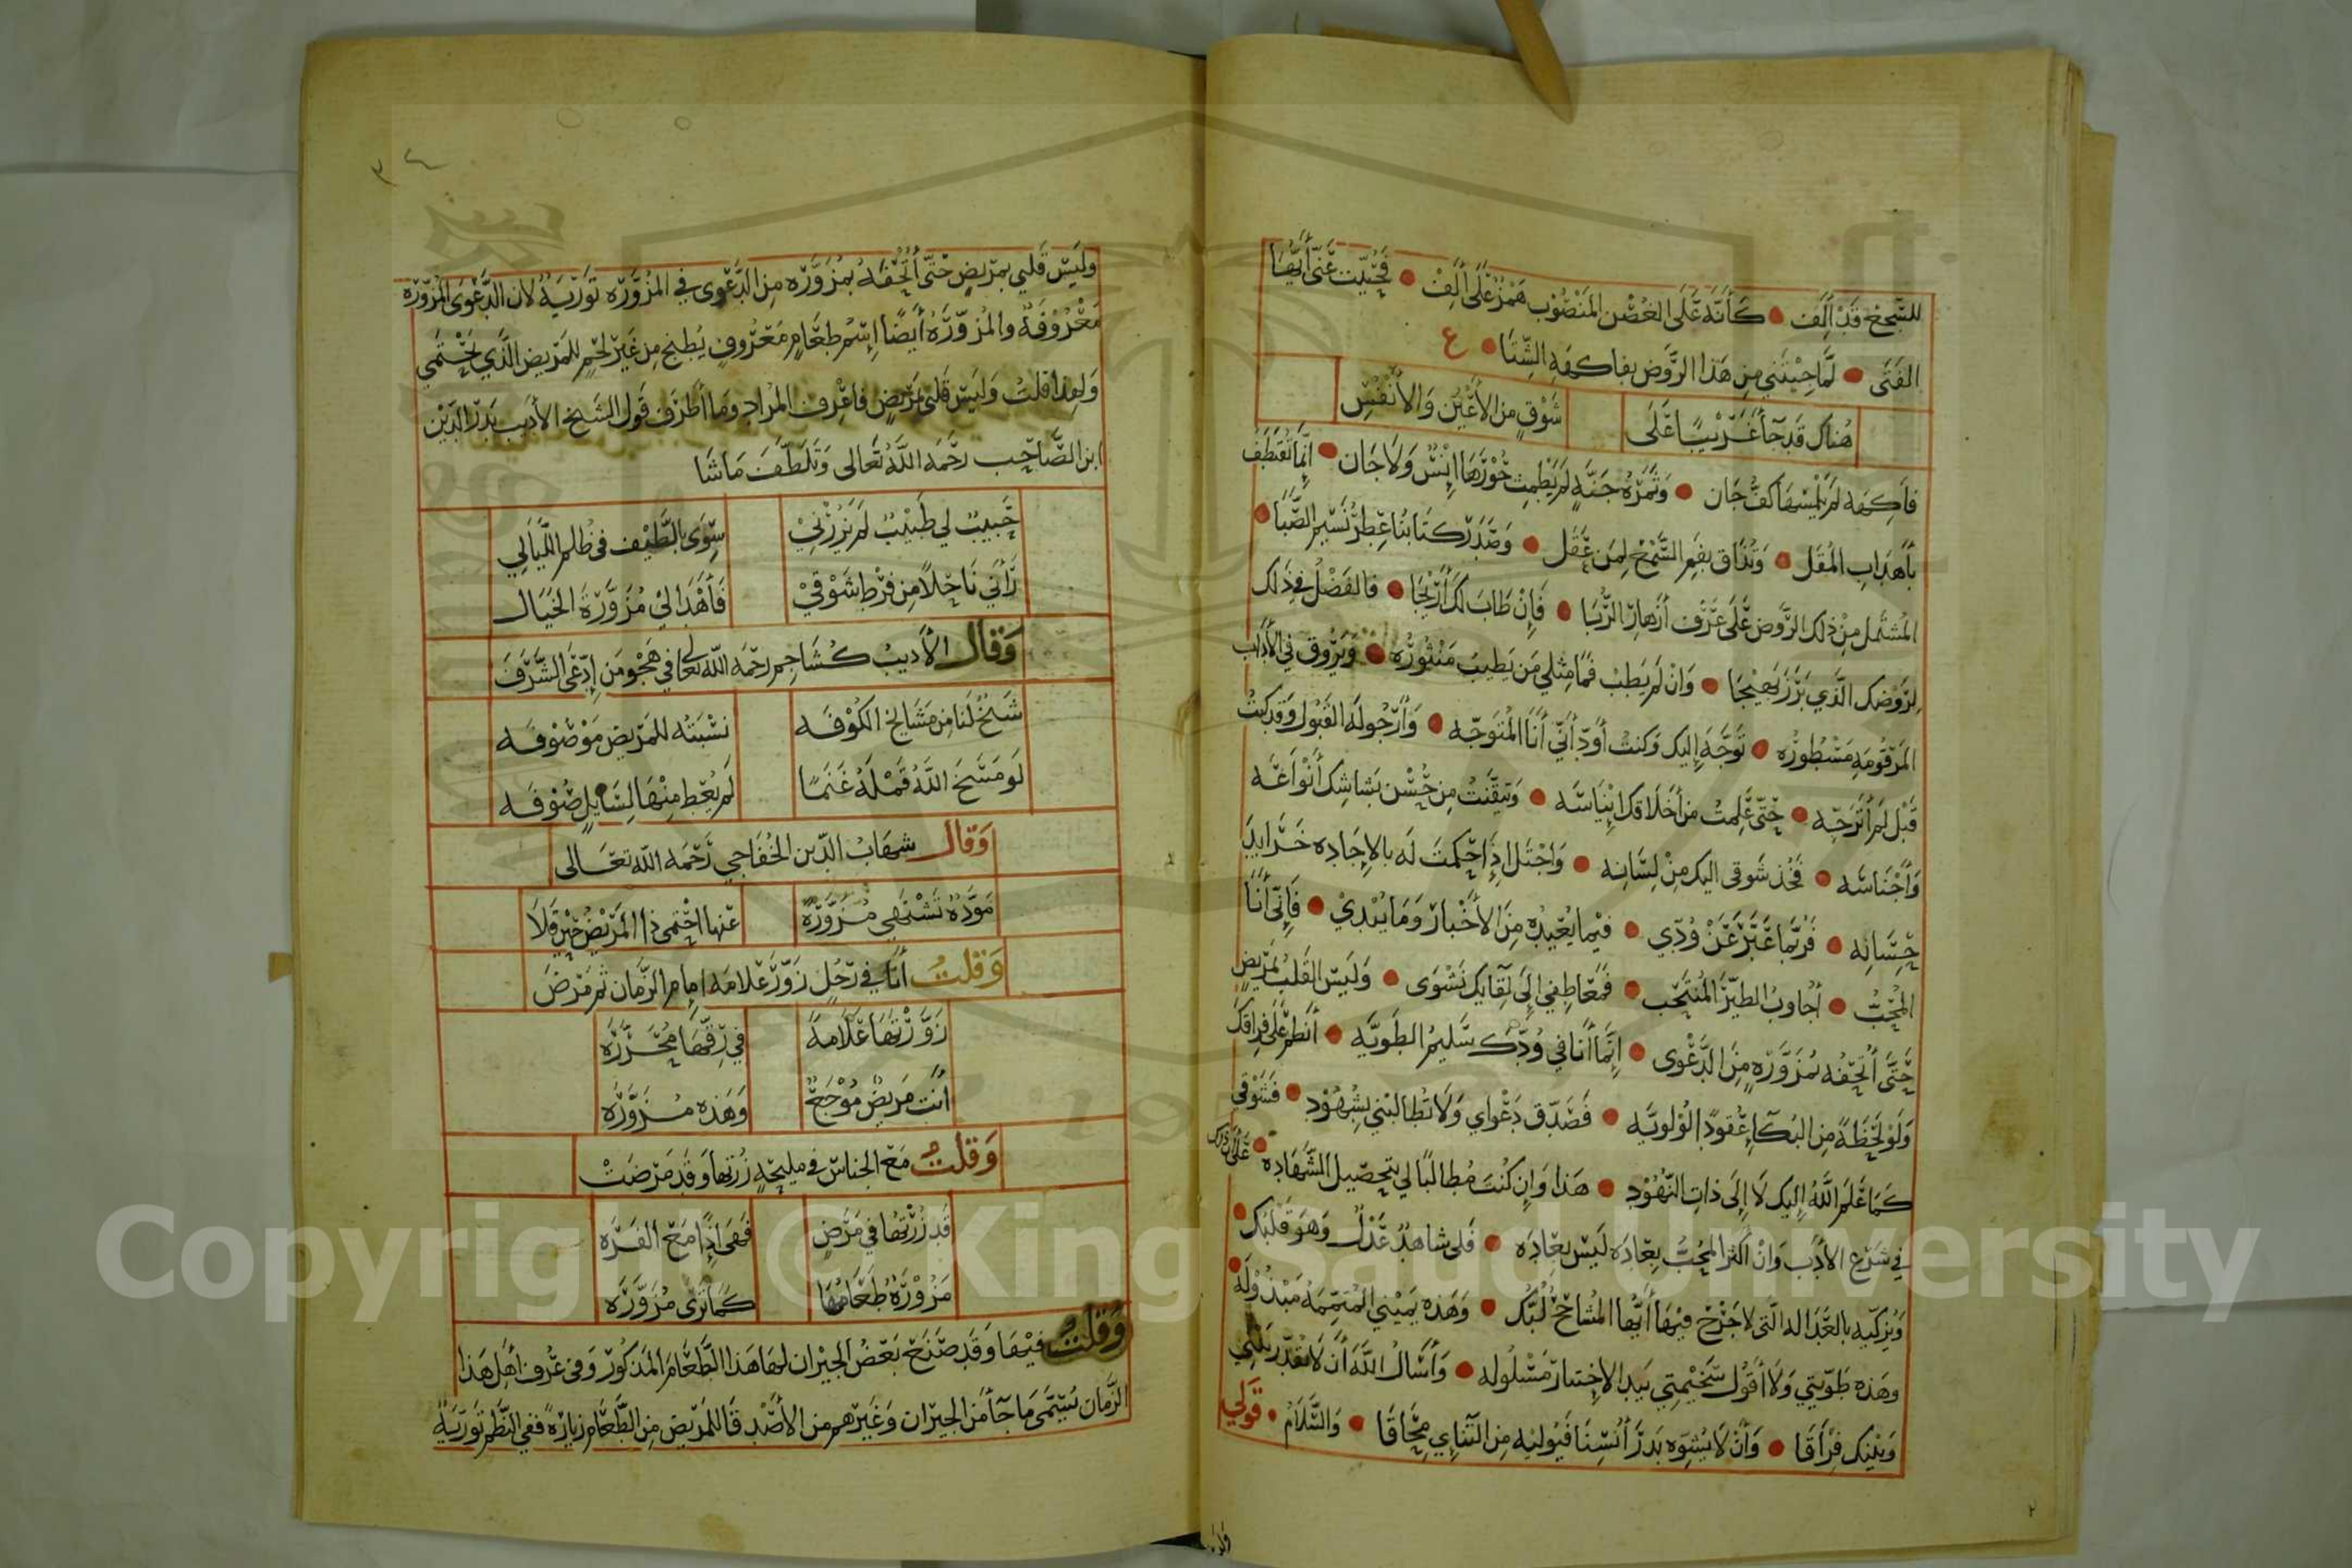 للسَّجع قد أَلِف • كأنّه على الغصن المنصوب همزٌ على ألف • فحُيّيت عنّي أيّها
الفتى • لمّا جئتني من هذا الروض بفاكهة الشتا • ع
هناك قد جآ غريبًا على شوقٍ من الأعين والأنفس
فاكهة لم يلمسها كفّ جان • وثمرة جنّةٍ لم يطمث حورها إنسٌ ولا جان • إنّما تُقتطف
بأهداب المقل • وتُذاق بفم السمع لمن عقل • وصدر كتابنا عطر نسيم الصّبا •
المشتمل من ذلك الروض على عَرف أزهار الرُّبا • فإن طاب لك أريجا • فالفضل في ذلك
لروضك الذي برز بهيجا • وان لم يطب فما مثلي من يطيب منثوره • ويروق في الآداب
المرقومة مسطوره • توجّه إليك وكنت أودّ أنّي أنا المتوجّه • وأرجو له القبول وقد كنتُ
قبل لم أترجّه • حتّى علمت من أخلاقك إيناسه • وتيقّنت من حسن بشاشك أنواعه
وأجناسه • فخذ شوقي اليك من لسانه • واجتل إذا حكمت له بالإجاده خرايد
حسانه • فربّما عبّر عن ودّي • فيما يعيده من الأخبار وما يبدي • فإنّي أنا
المحبّ • أجاوب الطير المنتحب • فمعاطفي إلى لقايك نشوى • وليس القلب بمريضٍ
حتّى أتحفه بمزوّرةٍ من الدعوى • إنّما أنا في ودّك سليم الطويّه • أنظم على فراقك
ولو لحظةً من البكآ عقودًا لولويّه • فصدّق دعواي ولا تطالبني بشهود • فشوقي
كما علم الله إليك لا إلى ذات النهود • هذا وان كنت مطالبًا لي بتحصيل الشهاده • على ذلك
في شرع الأدب وان اكثر المحبّ بعاده ليس بعاده • فلي شاهدٌ عدلٌ وهو قلبك •
ويزكّيه بالعدالة التي لا جرح فيها أيّها المشاحح لبّك • وهذه يميني المتمّمة مبذوله •
وهذه طويتي ولا أقول سخيمتي بيد الإختبار مسلوله • وأسأل الله أن لا يقدّر بيني
وبينك فراقا • وأن لا يشوه بدر أنسنا فيوليه من التنائي محاقا • والسلام • قولي
وليس قلبي بمريض حتّى أتحفه بمزوّره من الدعوى في المزوّره تورية لان الدعوى المزوّرة
معروفة والمزوّرة أيضًا إسم طعامٍ معروفٍ يطبخ من غير لحم للمريض الذي يحتمي
ولهذا قلت وليس قلبي بمريضٍ فاعرف المراد وما أظرف قول الشيخ الأديب بدر الدين
ابن الصاحب رحمه الله تعالى وتلطّف ما شا
حبيبٌ لي طبيبٌ لم يزرني سوى بالطيف في ظلم الليالي
رآني ناحلاً من فرط شوقي فأهدا لي مزوّرة الخيال
وقال الأديب كشاجم رحمه الله تعالى في هجو من إدّعى الشرف
شيخٌ لنا من مشايخ الكوفه نسبته للمريض موصوفه
لو مسخ الله قمله غنمًا لم يعط منها لسايلٍ صوفه
وقال شهاب الدين الخفاجي رحمه الله تعالى
مودّة تشتهي مزوّرة عنها احتمى ذا المريض حين قلا
وقلت أنا في رجل زوّر علامة إمام الزمان ثم مرض
زوّرتها علامة في رقّها محرّره
أنت مريض موجع وهذه مزوّره
وقلت مع الجناس في مليحةٍ زرتها وقد مرضت
قد زرتها في مرضٍ فهي إذًا مع الفره
مزورة طعامها كما ترى مزوّره
وقلت فيها وقد صنع بعض الجيران لها هذا الطعام المذكور وفي عرف أهل هذا
الزمان يسمّى ما جآ من الجيران وغيرهم من الأصدقا للمريض من الطعام زيارة ففي النظم تورية